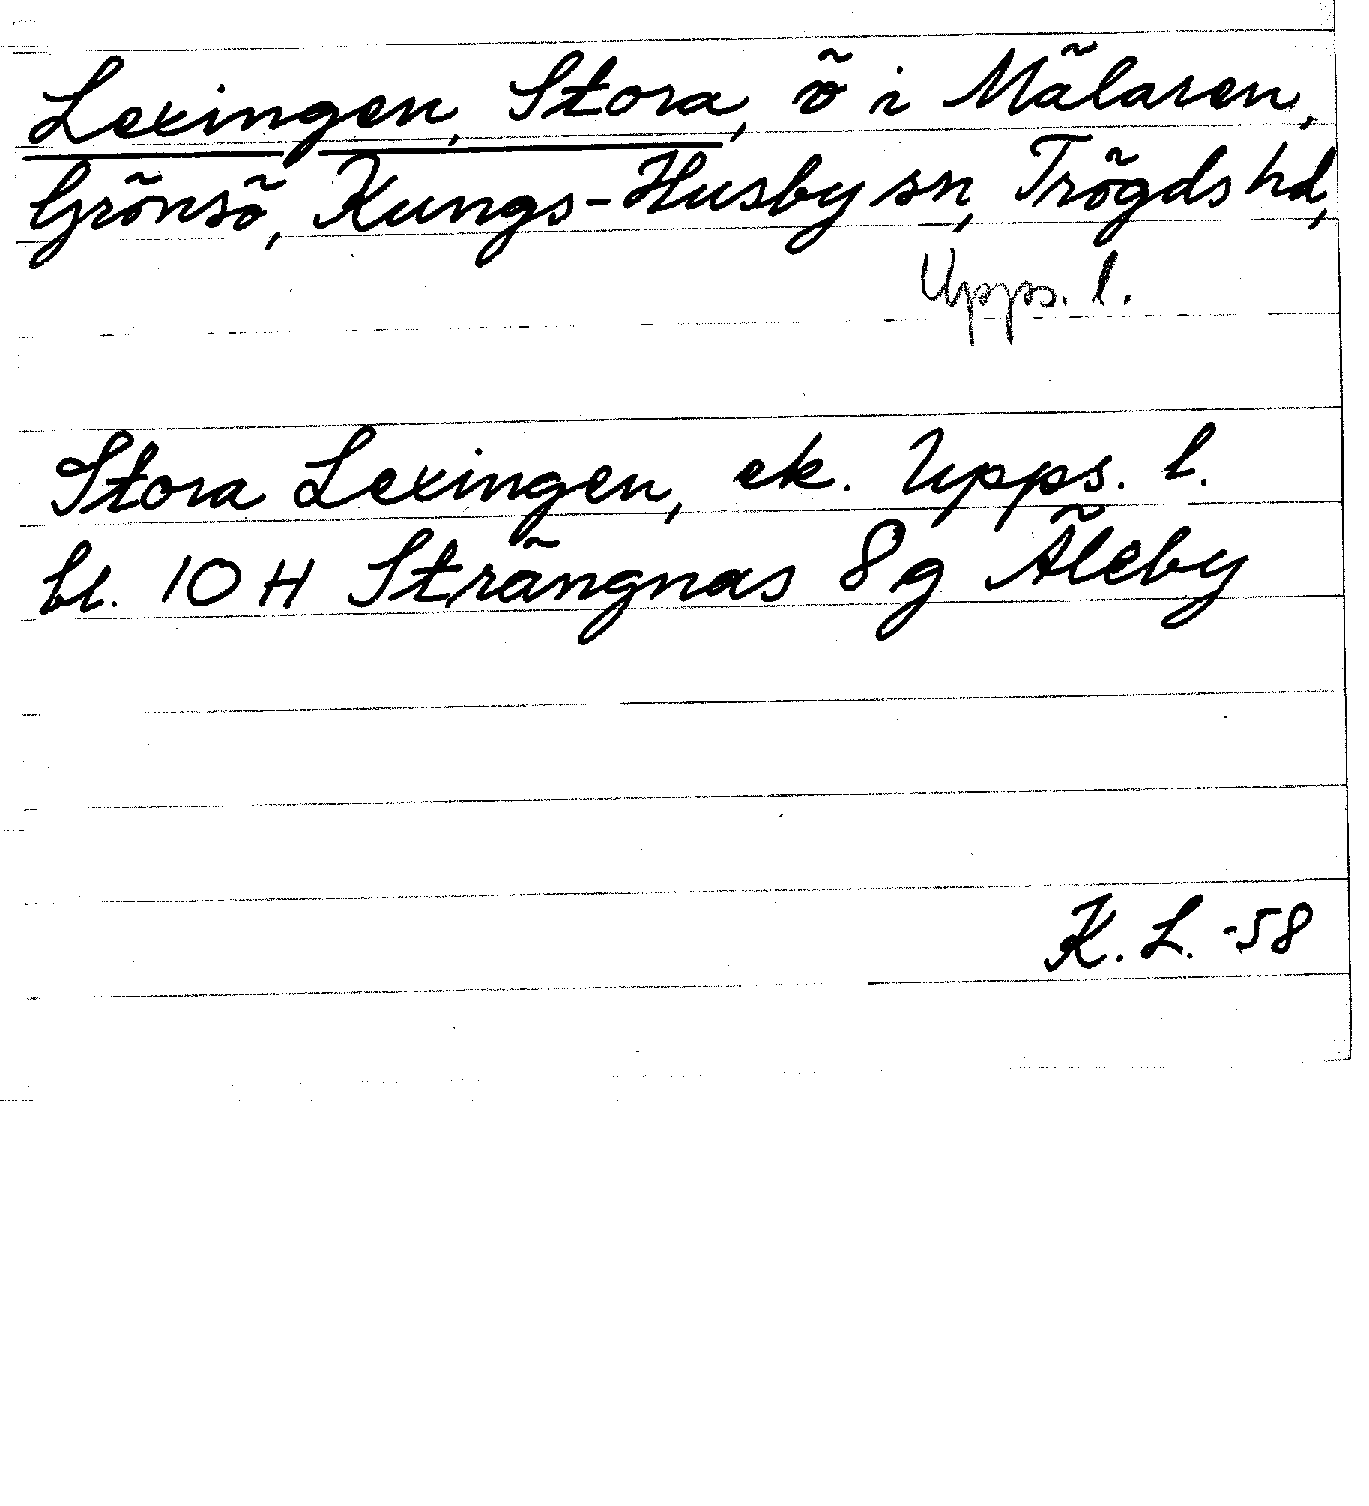 Lexingen, Stora, ö i Mälaren,
Grönsö, Kungs-Husby sn, Trögds hd,
Upps. l.
Stora Lexingen, ek. Upps. l.
bl. 10 H Strängnas 8g Äleby
K. L. -58